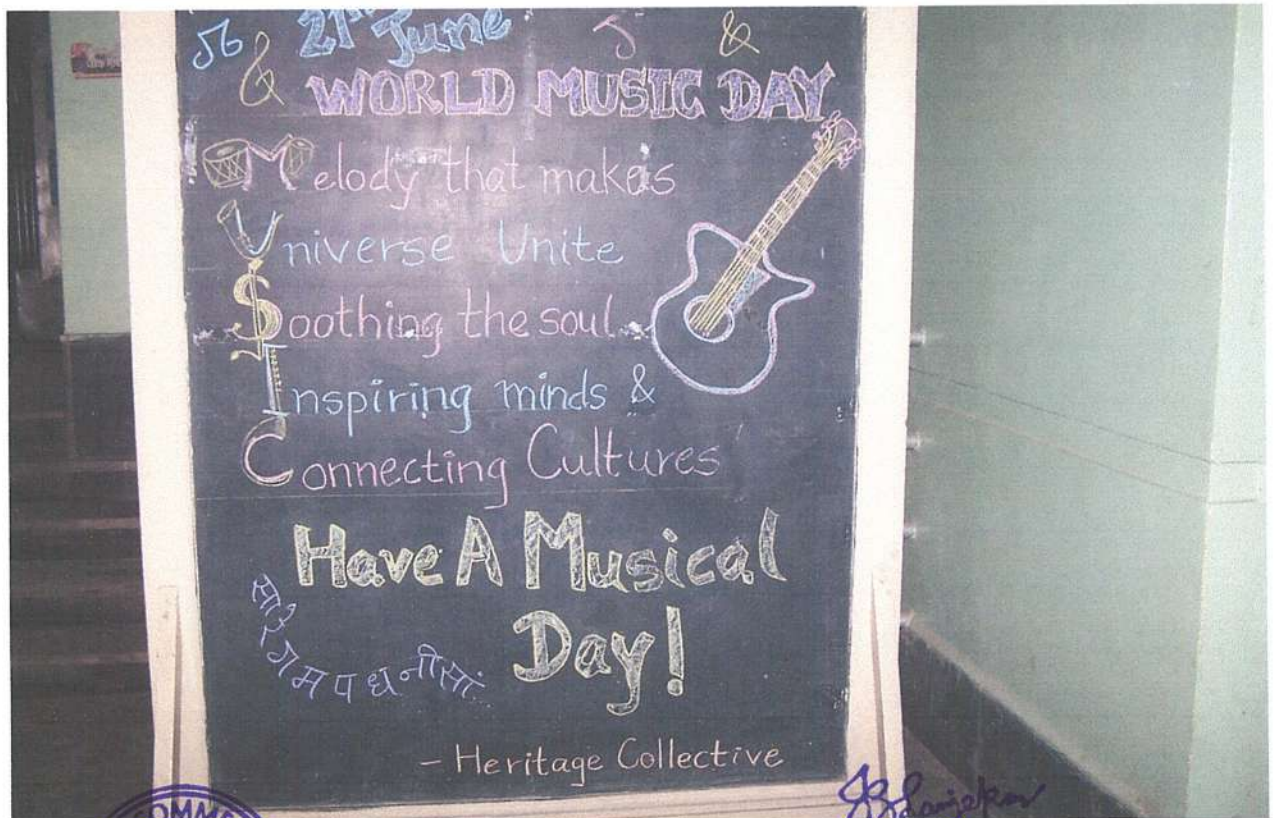 21st June
WORLD MUSIC DAY
Melody that makes
Universe Unite
Soothing the soul
Inspiring minds &
Connecting Cultures
Have A Musical
Day!
सा रे ग म प ध नी सां
- Heritage Collective
COMME